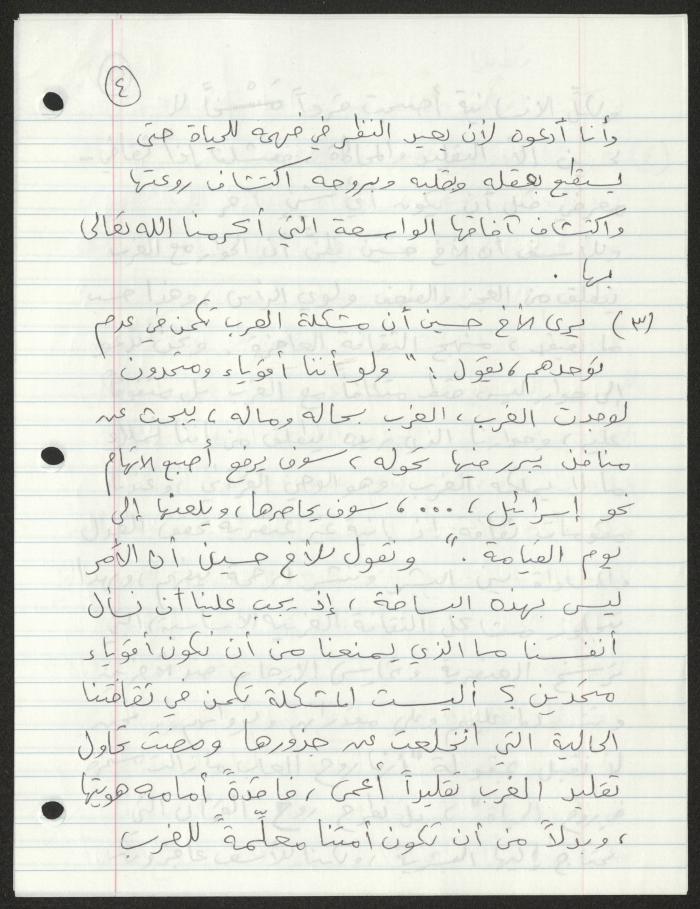 ٤
وأنا أدعوه لأن يعيد النظر في فهمه للحياة حتى
يستطيع بعقله وبقلبه وبروحه اكتشاف روعتها
واكتشاف آفاقها الواسعة التي أكرمنا الله تعالى
بها .
(٣) يرى الأخ حسين أن مشكلة العرب تكمن في عدم
توحدهم، يقول : " ولو أننا أقوياء ومتحدون
لوجدت الغرب ، الغرب بحاله وماله ، يبحث عن
منافذ يبرر فيها تحوله ، سوف يرفع أصبع الاتهام
نحو إسرائيل ، ... ، سوف يحاصرها ، ويلعنها إلى
يوم القيامة . " ونقول للأخ حسين أن الأمر
ليس بهذه البساطة ، إذ يجب علينا أن نسأل
أنفسنا ما الذي يمنعنا من أن نكون أقوياء
متحدين ؟ أليست المشكلة تكمن في ثقافتنا
الحالية التي انخلعت عن جذورها ومضت تحاول
تقليد الغرب تقليداً أعمى ، فاقدةً أمامه هويتها
، وبدلاً من أن تكون أمتنا معلِّمةً للغرب